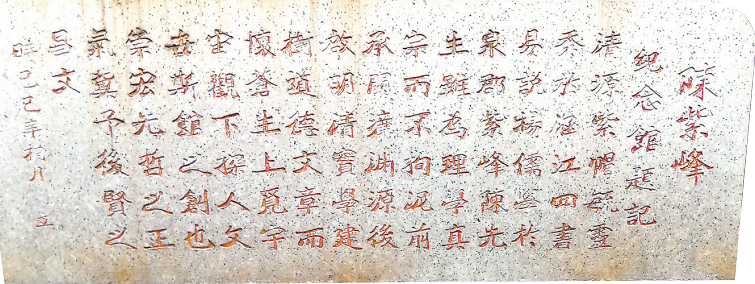 陳紫峰
紀念館題記
清源紫帽毓靈
秀於涵江四書
易說揚儒學於
泉郡紫峰陳先
生雖為理學真
宗而不拘泥前
承濂淵源後
啟明清實學建
樹道德文章而
懷蒼生上覓宇
宙觀下探人文
斯館之創也
崇宏先哲之正
氣冀予後賢之
昌文
時己巳年月 立